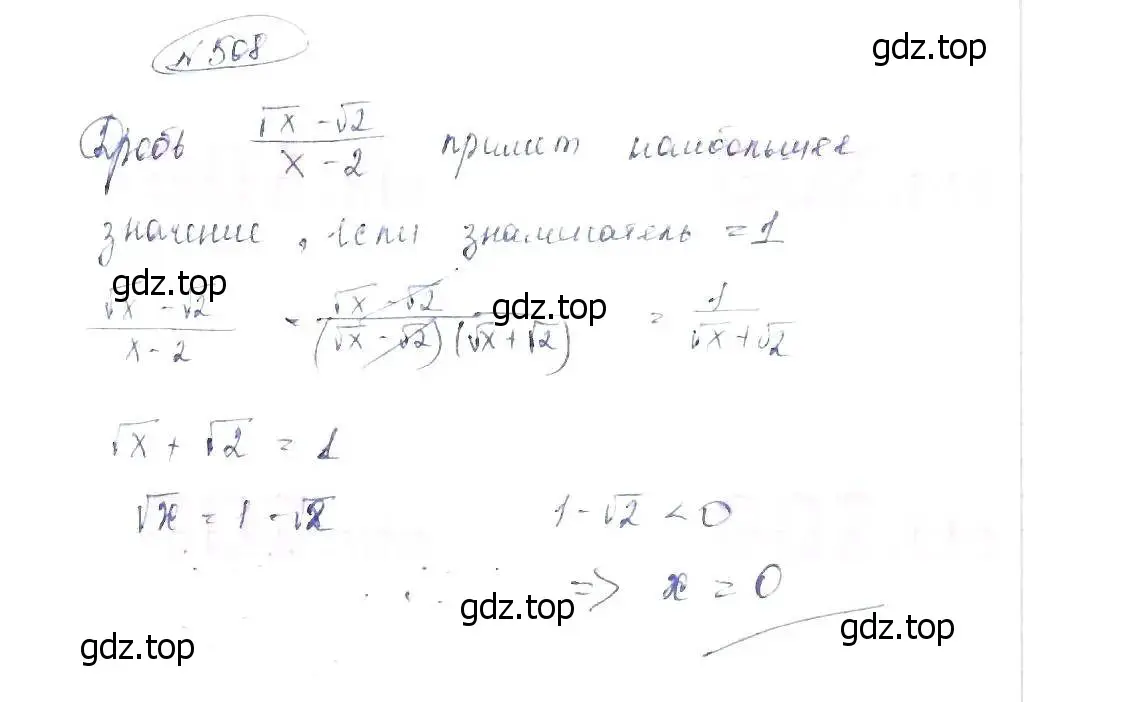 № 568
gdz.top
Дробь (√x - √2)/(x - 2) примет наибольшее
значение, если знаминатель = 1
gdz.top
gdz.top
(√x - √2)/(x - 2) = (√x - √2)/((√x - √2)(√x + √2)) = 1/(√x + √2)
√x + √2 = 1
√x = 1 - √2 1 - √2 < 0
=> x = 0
gdz.top
gdz.top
gdz.top